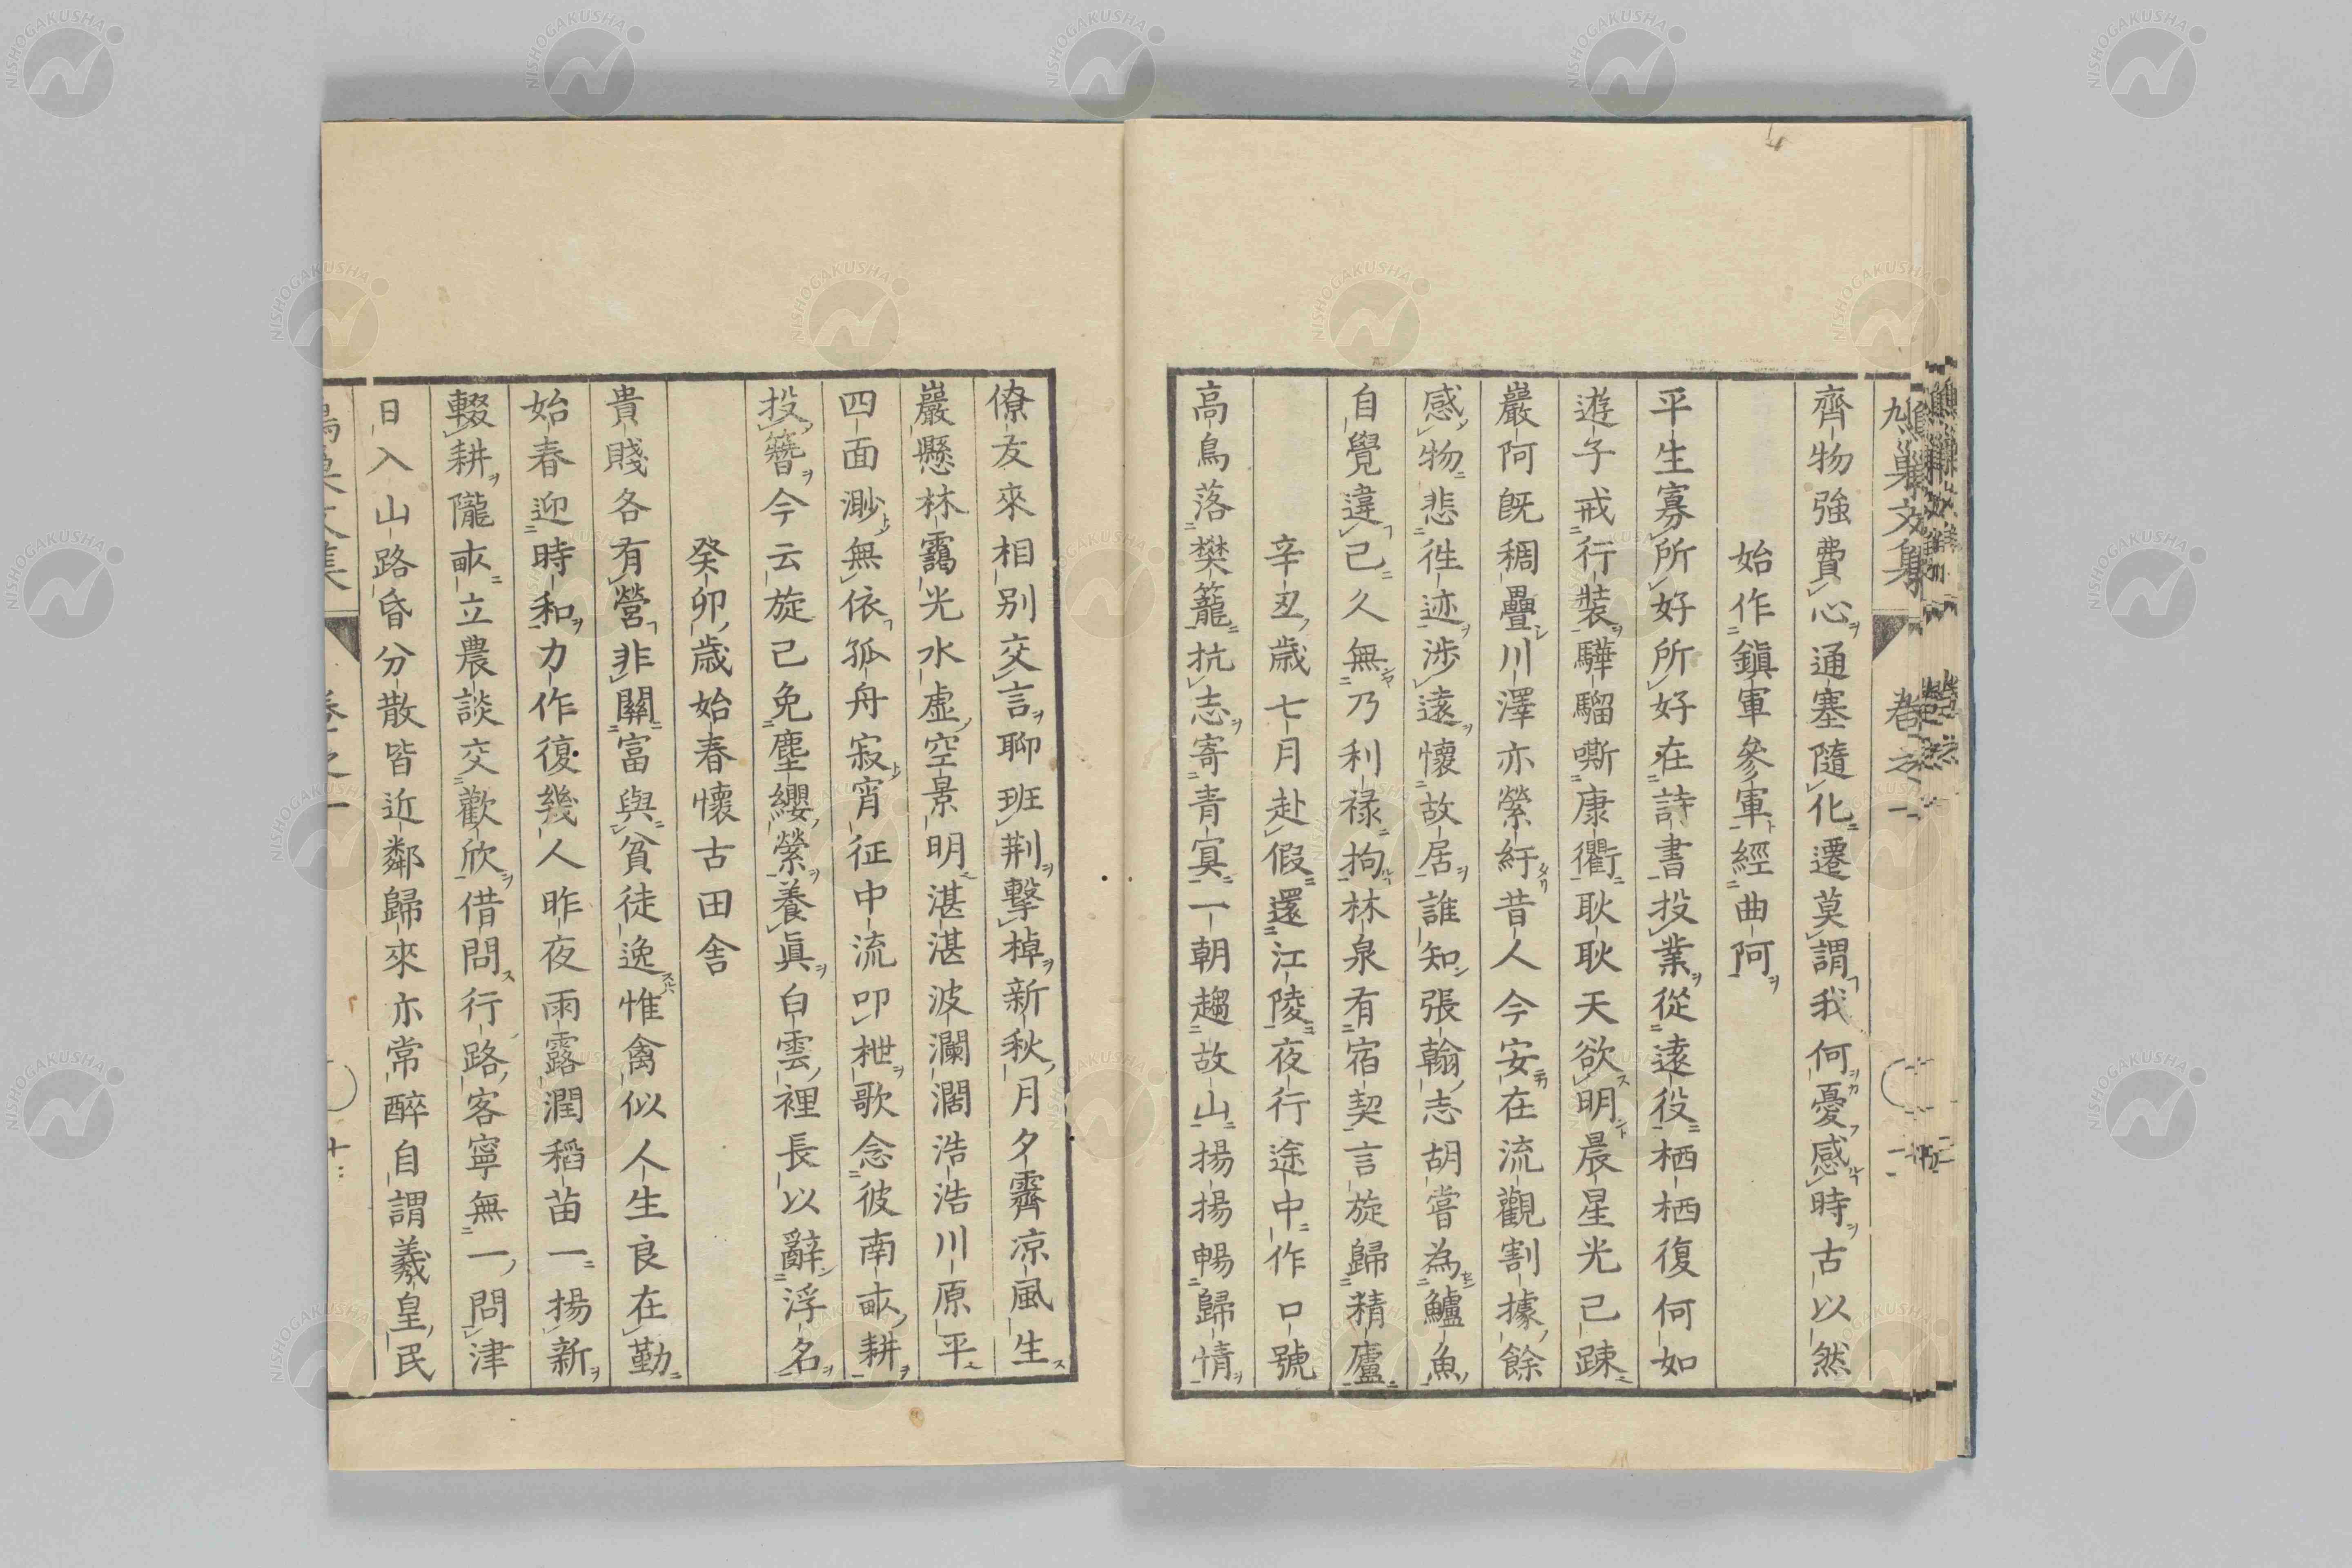 鳩巢文集 卷之一
齊物強費心通塞隨化遷莫謂我何憂感時古以然
始作鎮軍參軍經曲阿
平生寡所好所好在詩書投業從遠役栖栖復何如
遊子戒行裝驊騮嘶康衢耿耿天欲明晨星光已踈
巖阿既稠疊川澤亦縈紆昔人今安在流觀割據餘
感物悲徃迹涉遠懷故居誰知張翰志胡嘗為鱸魚
自覺違己久無乃利禄拘林泉有宿契言旋歸精廬
辛丑歳七月赴假還江陵夜行途中作口號
高鳥落樊籠抗志寄青冥一朝趨故山揚揚暢歸情
僚友來相別交言聊班荆擊棹新秋月夕霽凉風生
巖懸林靄光水虛空景明湛湛波瀾濶浩浩川原平
四面渺無依孤舟寂宵征中流叩枻歌念彼南畝耕
投簪今云旋已免塵纓縈養眞白雲裡長以辭浮名
癸卯歳始春懷古田舎
貴賤各有營非關富與貧徒逸惟禽似人生良在勤
始春迎時和力作復幾人昨夜雨露潤稻苗一揚新
輟耕隴畝立農談交歡欣借問行路客寧無一問津
日入山路昏分散皆近鄰歸來亦常醉自謂羲皇民